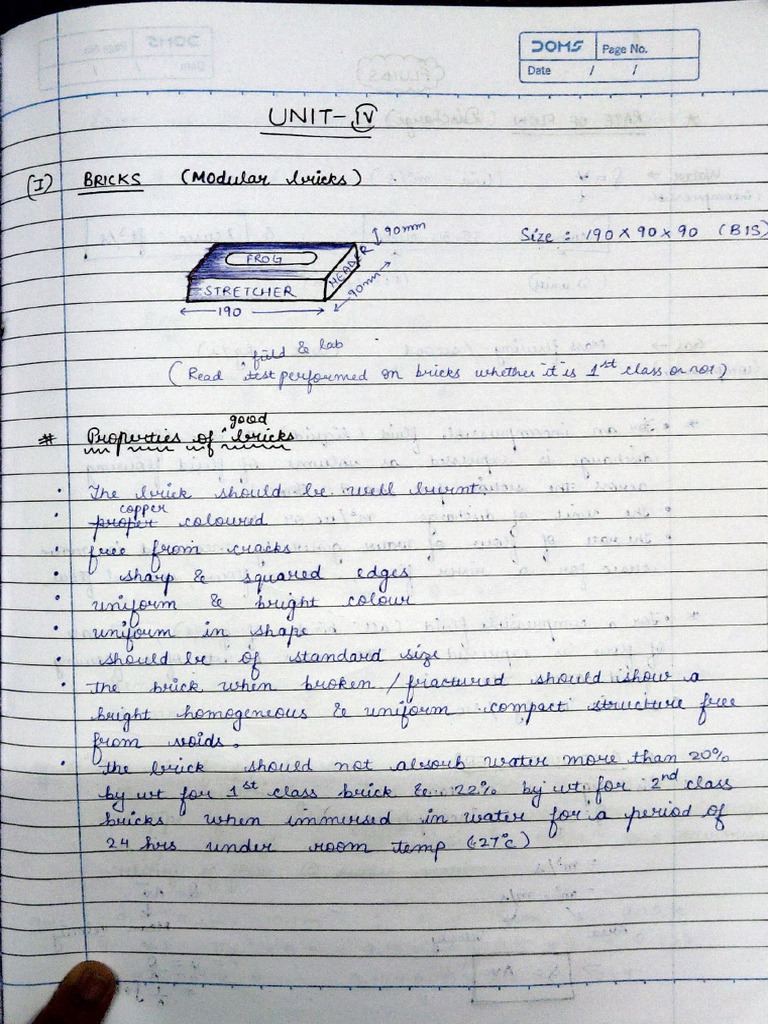 DOMS Page No.
Date / /
UNIT-IV
(I) BRICKS (Modular bricks)
90mm
Size : 190 X 90 X 90 (BIS)
FROG
HEADER
STRETCHER
90mm
190
field & lab
(Read test performed on bricks whether it is 1st class or not)
good
# Properties of bricks
• The brick should be well burnt.
copper
• proper coloured
• free from cracks
• sharp & squared edges
• uniform & bright colour
• uniform in shape
• should be of standard size
• the brick when broken / fractured should show a
bright homogeneous & uniform compact structure free
from voids.
• the brick should not absorb water more than 20%
by wt for 1st class brick & 22% by wt for 2nd class
bricks when immersed in water for a period of
24 hrs under room temp (27°c)